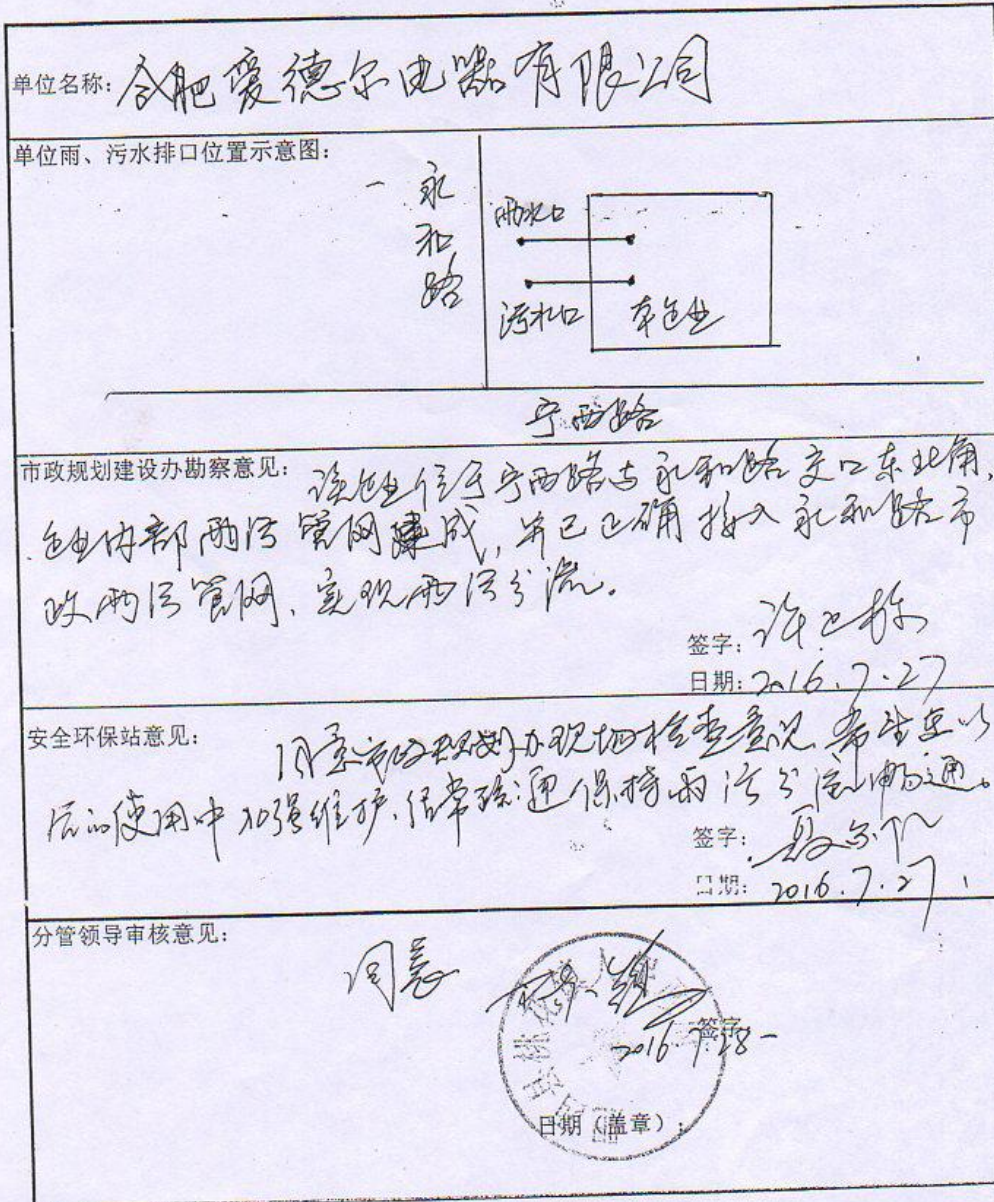 单位名称：合肥爱德尔电器有限公司
单位雨、污水排口位置示意图：
永和路
雨水口
污水口
本企业
宁西路
市政规划建设办勘察意见：
该企业位于宁西路与永和路交口东北角，
企业内部雨污管网建成，并已正确接入永和路市
政雨污管网，实现雨污分流。
签字：许
日期：2016.7.27
安全环保站意见：
同意市政规划办现场检查意见，希望在以
后的使用中加强维护，经常疏通保持雨污分流畅通。
签字：
日期：2016.7.27
分管领导审核意见：
同意
签字
2016.7.28
日期（盖章）：